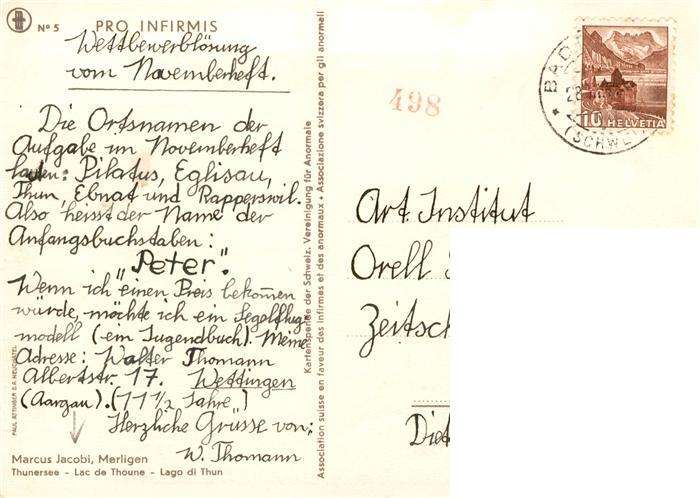 No 5 PRO INFIRMIS
Wettbewerblösung
vom Novemberheft.
Die Ortsnamen der
Aufgabe im Novemberheft
lauten: Pilatus, Eglisau,
Thun, Ebnat und Rapperswil.
Also heisst der Name der
Anfangsbuchstaben:
"Peter".
Wenn ich einen Preis bekommen
würde, möchte ich ein Segelflug-
modell (ein Jugendbuch). Meine
Adresse: Walter Thomann
Albertstr. 17. Wettingen
(Aargau). (11 1/2 Jahre)
Herzliche Grüsse von:
W. Thomann
Marcus Jacobi, Merligen
Thunersee - Lac de Thoune - Lago di Thun
PAUL ATTINGER S.A. NEUCHATEL
Kartenspende der Schweiz. Vereinigung für Anormale
Association suisse en faveur des infirmes et des anormaux • Associazione svizzera per gli anormali
498
10 HELVETIA
BAD
28
(SCHWE
Art. Institut
Orell
Zeitsch
Diet